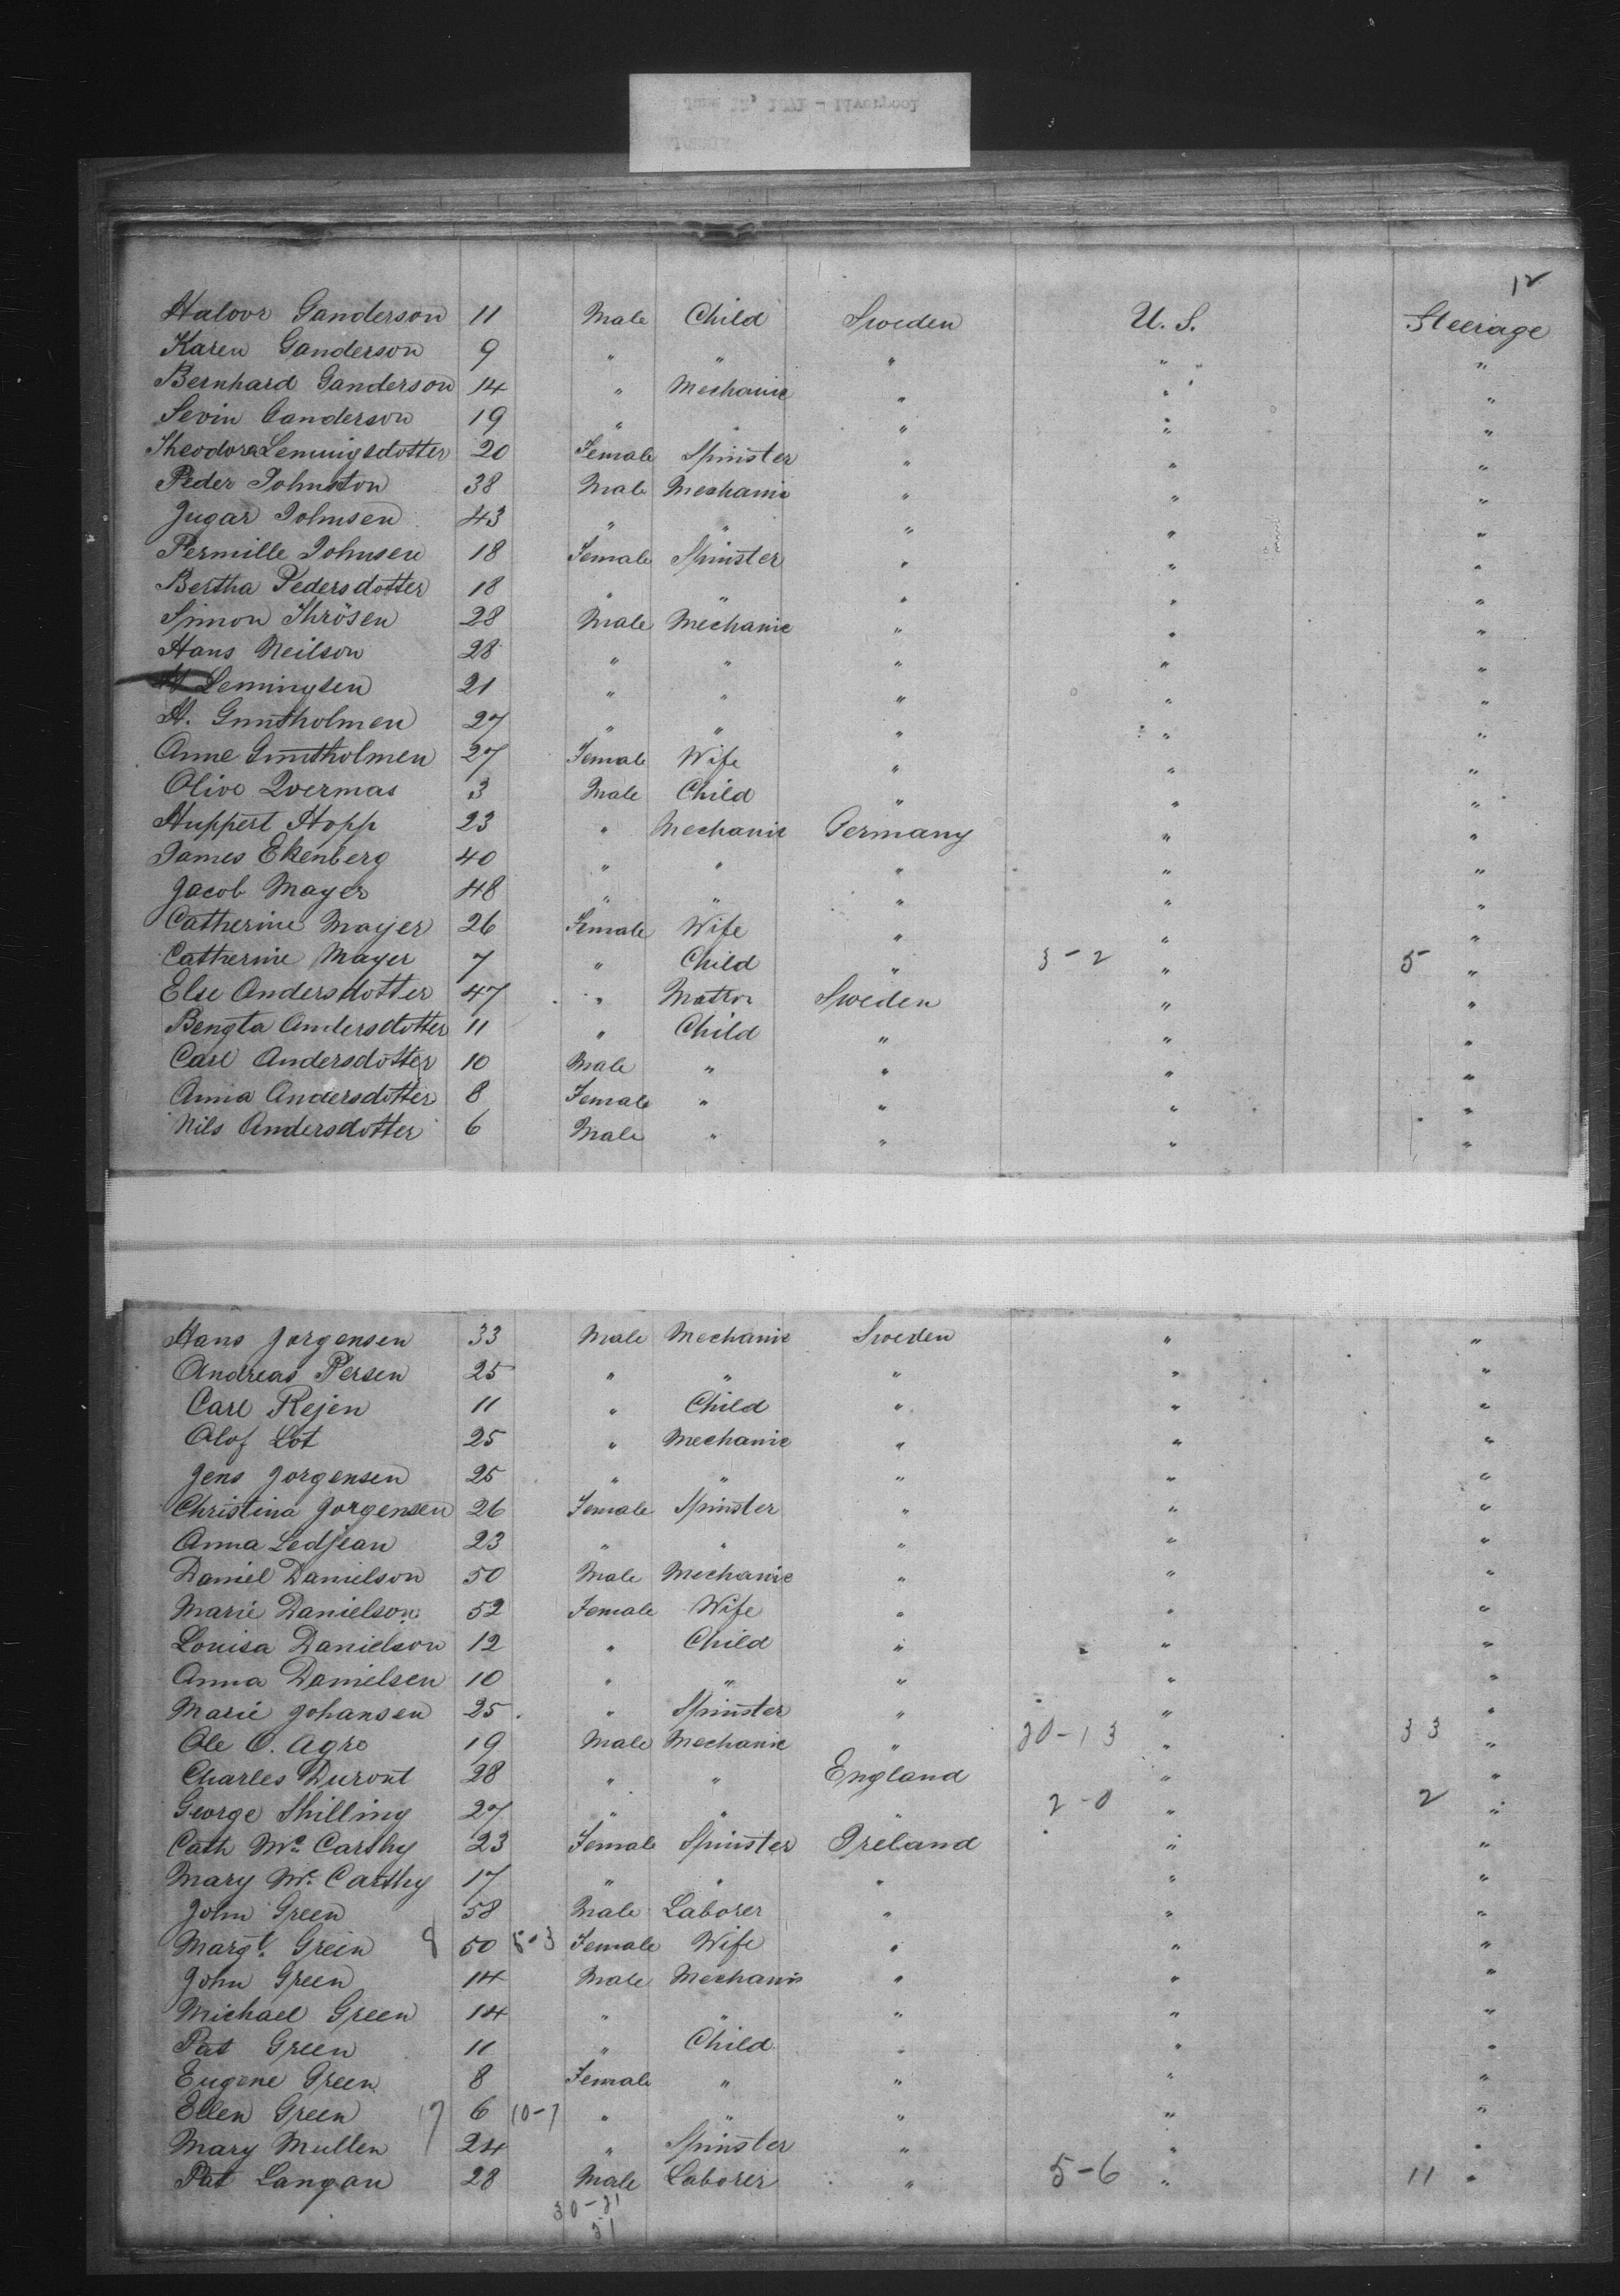 12
Halvor Ganderson 11 Male Child Sweden U. S. Steerage
Karen Ganderson 9 " " " " "
Bernhard Ganderson 14 " Mechanic " " "
Sevin Ganderson 19 " " " " "
Theodora Lemingsdotter 20 Female Spinster " " "
Peder Johnston 38 Male Mechanic " " "
Jugar Johnsen 43 " " " " "
Permille Johnsen 18 Female Spinster " " "
Bertha Pedersdotter 18 " " " " "
Simon Thrösen 28 Male Mechanic " " "
Hans Neilson 28 " " " " "
Lemingsen 21 " " " " "
H. Guntholmen 27 " " " " "
Anne Guntholmen 27 Female Wife " " "
Olive Qvermas 3 Male Child " " "
Huppert Hopp 23 " Mechanic Germany " "
James Ekenberg 40 " " " " "
Jacob Mayer 48 " " " " "
Catherine Mayer 26 Female Wife " " "
Catherine Mayer 7 " Child " 3-2 " 5 "
Else Andersdotter 47 " Matron Sweden " "
Bengta Andersdotter 11 " Child " " "
Carl Andersdotter 10 Male " " " "
Anna Andersdotter 8 Female " " " "
Nils Andersdotter 6 Male " " " "
Hans Jorgensen 33 Male Mechanic Sweden " "
Andreas Persen 25 " " " " "
Carl Rejen 11 " Child " " "
Olof Lot 25 " Mechanic " " "
Jens Jorgensen 25 " " " " "
Christina Jorgensen 26 Female Spinster " " "
Anna Ledjean 23 " " " " "
Daniel Danielson 50 Male Mechanic " " "
Marie Danielson 52 Female Wife " " "
Louisa Danielson 12 " Child " " "
Anna Danielsen 10 " " " " "
Marie Johansen 25 " Spinster " " "
Ole O. Agre 19 Male Mechanic " 20-13 " 33 "
Charles Duront 28 " " England " "
George Shilling 27 " " " 2-0 " 2 "
Cath Mc Carthy 23 Female Spinster Ireland " "
Mary Mc Carthy 17 " " " " "
John Green 58 Male Laborer " " "
Margt. Grein 8 50 5-3 Female Wife " " "
John Green 14 Male Mechanic " " "
Michael Green 14 " " " " "
Pat Green 11 " Child " " "
Eugene Green 8 Female " " " "
Ellen Green 17 6 10-7 " " " " "
Mary Mullen 24 " Spinster " " "
Pat Langan 28 Male Laborer " 5-6 " 11 "
30-21
51